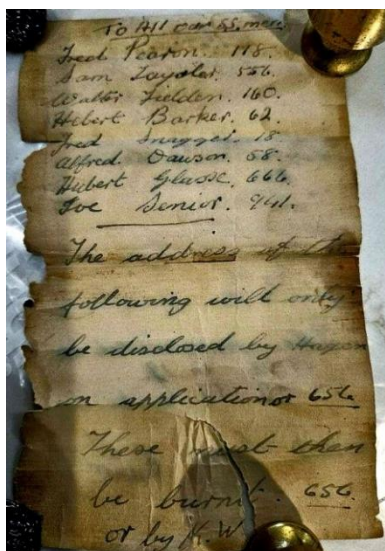 To All our SS. men
Fred Pearon. 118.
Sam Taylor. 556.
Walter Fielden. 160.
Hebert Barker. 62.
Fred 18
Alfred Dawson. 58.
Hubert Glasse. 666.
Joe Senior. 941.
The address of the
following will only
be disclosed by
on application or 656.
These must then
be burnt. 656.
or by H.W